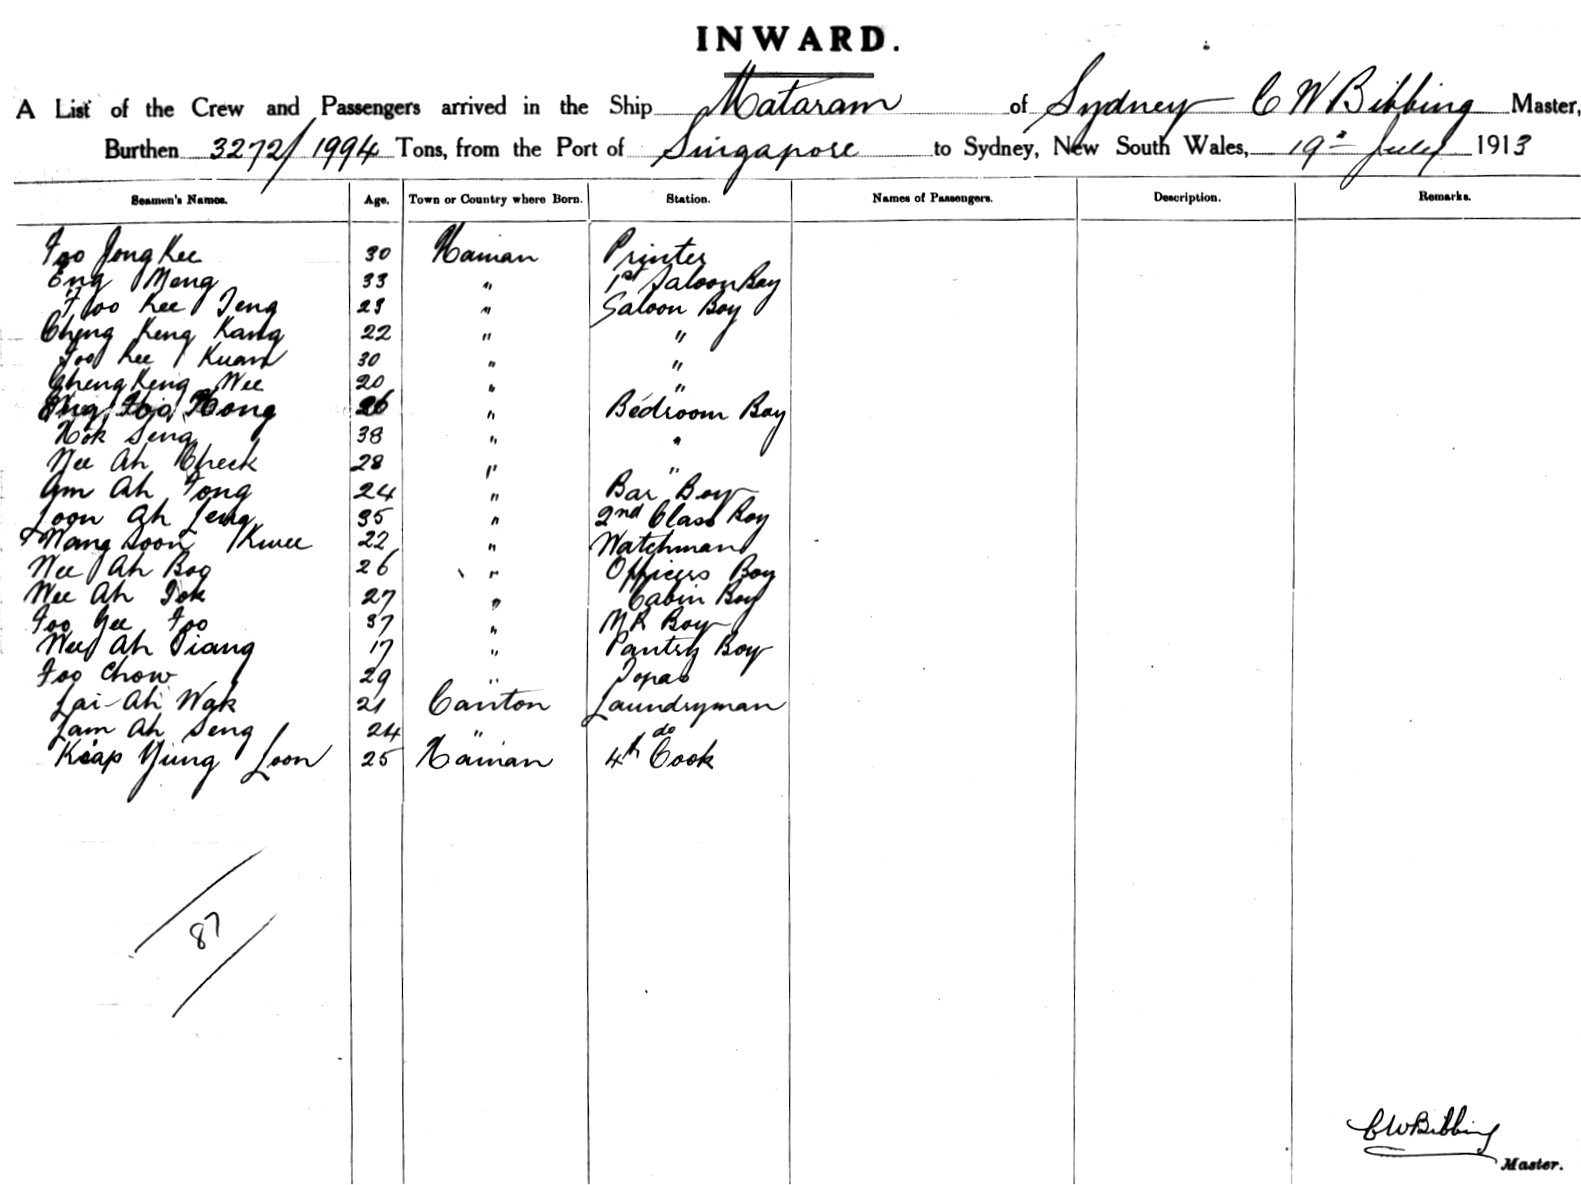 INWARD.
A List of the Crew and Passengers arrived in the Ship Mataram of Sydney C W Bibbing Master,
Burthen 3272/1994 Tons, from the Port of Singapore to Sydney, New South Wales, 19th July 1913
Seamen's Names. Age. Town or Country where Born. Station. Names of Passengers. Description. Remarks.
Foo Jong Kee 30 Hainan Printer
Eng Meng 33 " 1st Saloon Boy
Foo Kee Teng 23 " Saloon Boy
Cheng Keng Kang 22 " "
Foo Kee Kuan 30 " "
Cheng Keng Wee 20 " "
Foo Hong 26 " Bedroom Boy
Hok Seng 38 " "
Nee Ah Cheek 28 " "
Am Ah Fong 24 " Bar Boy
Loon Ah Leng 35 " 2nd Class Boy
Wang Soon Kwee 22 " Watchman
Nee Ah Boo 26 " Officers Boy
Wee Ah Tok 27 " Cabin Boy
Foo Yee Foo 37 " M R Boy
Wee Ah Tiang 17 " Pantry Boy
Foo Chow 29 " Topas
Lai Ah Wak 21 Canton Laundryman
Lam Ah Seng 24 " do
Kiap Yung Loon 25 Hainan 4th Cook
87
C W Bibbing
Master.